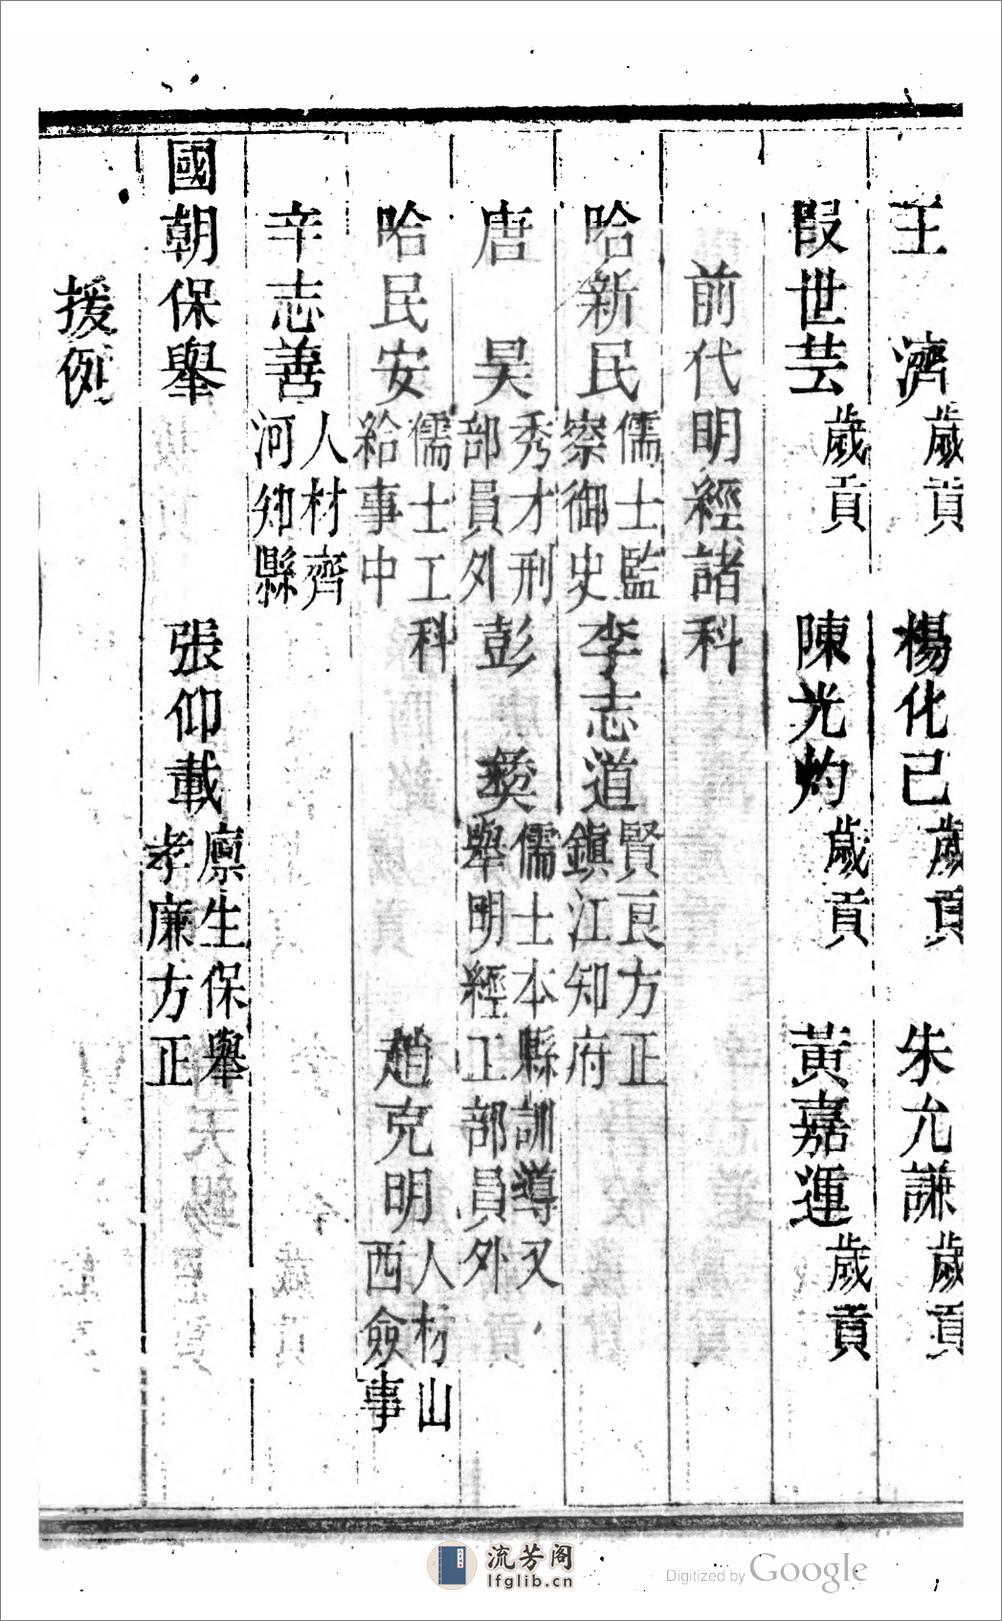 王　濟歲貢　楊化己歲貢　朱允謙歲貢
段世芸歲貢　陳光灼歲貢　黃嘉運歲貢
前代明經諸科
哈新民儒士監察御史　李志道賢良方正鎮江知府
唐　吴秀才刑部員外　彭　㸚儒士本縣訓導又舉明經工部員外
哈民安儒士工科給事中　趙克明人材山西僉事
辛志善人材齊河知縣
國朝保舉　張仰載廪生保舉孝廉方正
援例
流芳阁
lfglib.cn
Digitized by Google